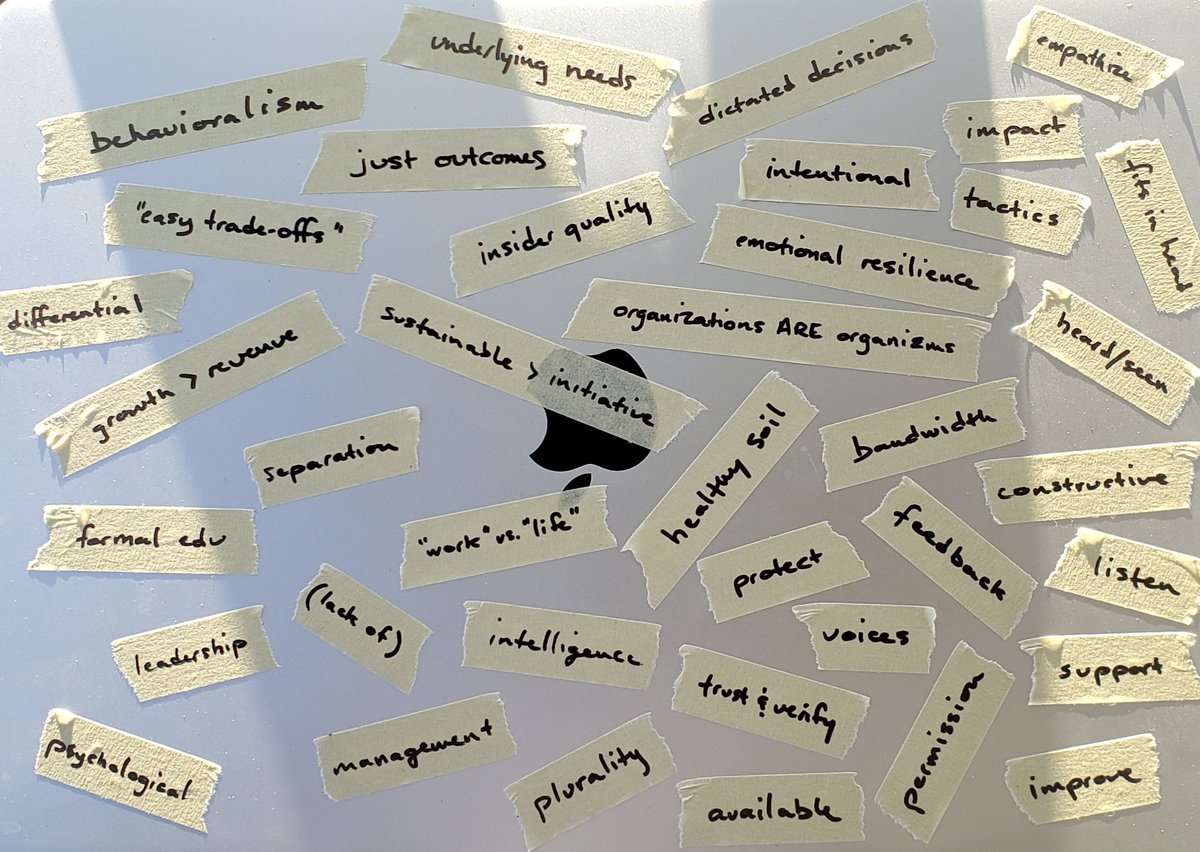 underlying needs
dictated decisions
empathize
behavioralism
just outcomes
impact
intentional
fits in head
"easy trade-offs"
insider quality
tactics
emotional resilience
differential
growth > revenue
sustainable > initiative
organizations ARE organizms
heard/seen
separation
healthy soil
bandwidth
constructive
formal edu
"work" vs. "life"
protect
feedback
listen
leadership
(lack of)
intelligence
voices
support
trust & verify
permission
psychological
management
plurality
available
improve